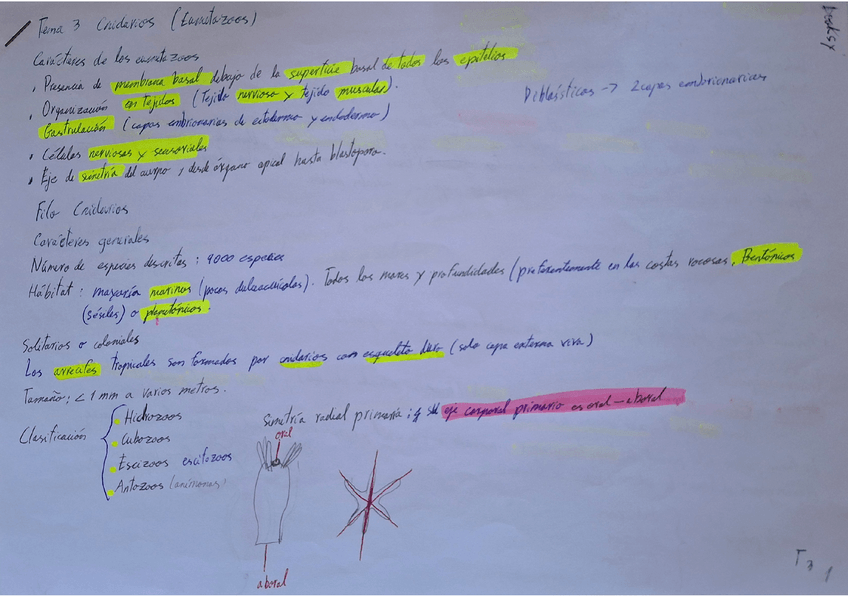 Tema 3 Cnidarios (Eumetazoos)
Carácteres de los eumetazoos
• Presencia de membrana basal debajo de la superficie basal de todos los epitelios
• Organización en tejidos (tejido nervioso y tejido muscular).
Diblásticos -> 2 capas embrionarias
Gastrulación (capas embrionarias de ectodermo y endodermo)
• Células nerviosas y sensoriales
• Eje de simetría del cuerpo, desde órgano apical hasta blastoporo.
Filo Cnidarios
Carácteres generales
Número de especies descritas: 9000 especies
Hábitat: mayoría marinos (pocos dulceacuícolas). Todos los mares y profundidades (preferentemente en las costas rocosas. Bentónicos
(sésiles) o planctónicos.
Solitarios o coloniales
Los arrecifes tropicales son formados por cnidarios con esqueleto duro (solo capa externa viva)
Tamaño: < 1 mm a varios metros.
Clasificación
• Hidrozoos
• Cubozoos
• Escizoos escifozoos
• Antozoos (anémonas)
Simetría radial primaria: eje corporal primario es oral-aboral
oral
aboral
T 3 1